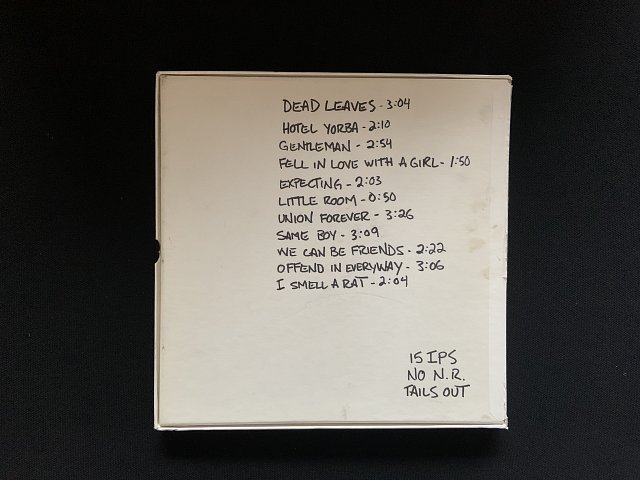 DEAD LEAVES - 3:04
HOTEL YORBA - 2:10
GENTLEMAN - 2:54
FELL IN LOVE WITH A GIRL - 1:50
EXPECTING - 2:03
LITTLE ROOM - 0:50
UNION FOREVER - 3:26
SAME BOY - 3:09
WE CAN BE FRIENDS - 2:22
OFFEND IN EVERYWAY - 3:06
I SMELL A RAT - 2:04
15 IPS
NO N.R.
TAILS OUT